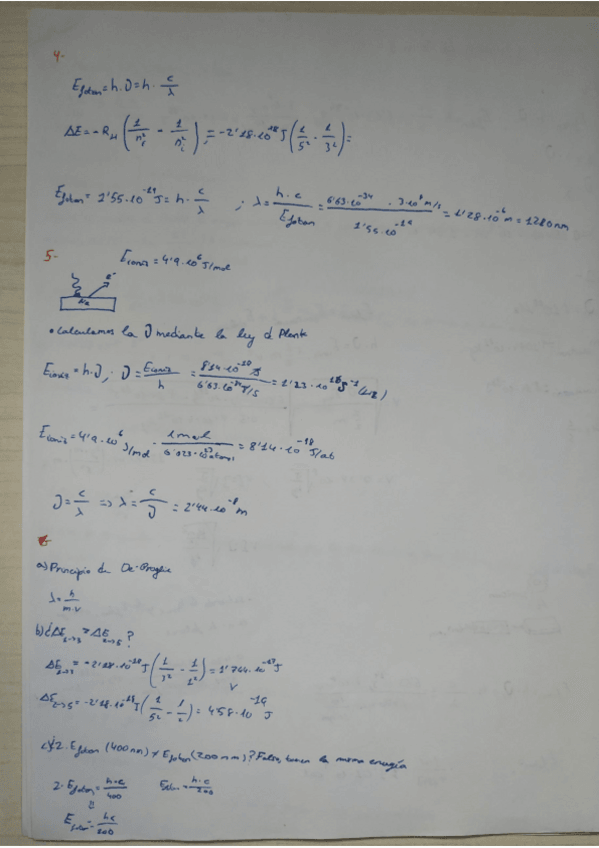 4-
E fotón = h·ν = h· c/λ
ΔE = -R_H (1/n_f² - 1/n_i²) ; = -2'18·10^-18 J (1/5² - 1/3²) =
E fotón = 1'55·10^-19 J = h· c/λ ; λ = h·c/E fotón = 6'63·10^-34 · 3·10^8 m/s / 1'55·10^-19 = 1'28·10^-6 m = 1280 nm
5-
E ioniz = 4'9·10^6 J/mol
e-
• Calculamos la ν mediante la ley d Plank
E ioniz = h·ν ; ν = E ioniz/h = 8'14·10^-18 J / 6'63·10^-34 J/s = 1'23·10^16 s^-1 (Hz)
E ioniz = 4'9·10^6 J/mol · 1 mol / 6'023·10^23 átomos = 8'14·10^-18 J/at
ν = c/λ => λ = c/ν = 2'44·10^-8 m
6-
a) Principio de De Broglie
λ = h/m·v
b) ¿ΔE 1→3 = ΔE 2→5?
ΔE 1→3 = -2'18·10^-18 J (1/3² - 1/1²) =
ΔE 2→5 = -2'18·10^-18 J (1/5² - 1/2²) = 4'58·10^-19 J
c) ¿2·E fotón (400 nm) ≠ E fotón (200 nm)? Falso, tienen la misma energía
2·E fotón = h·c/400 E fotón = h·c/200
E fotón = hc/200